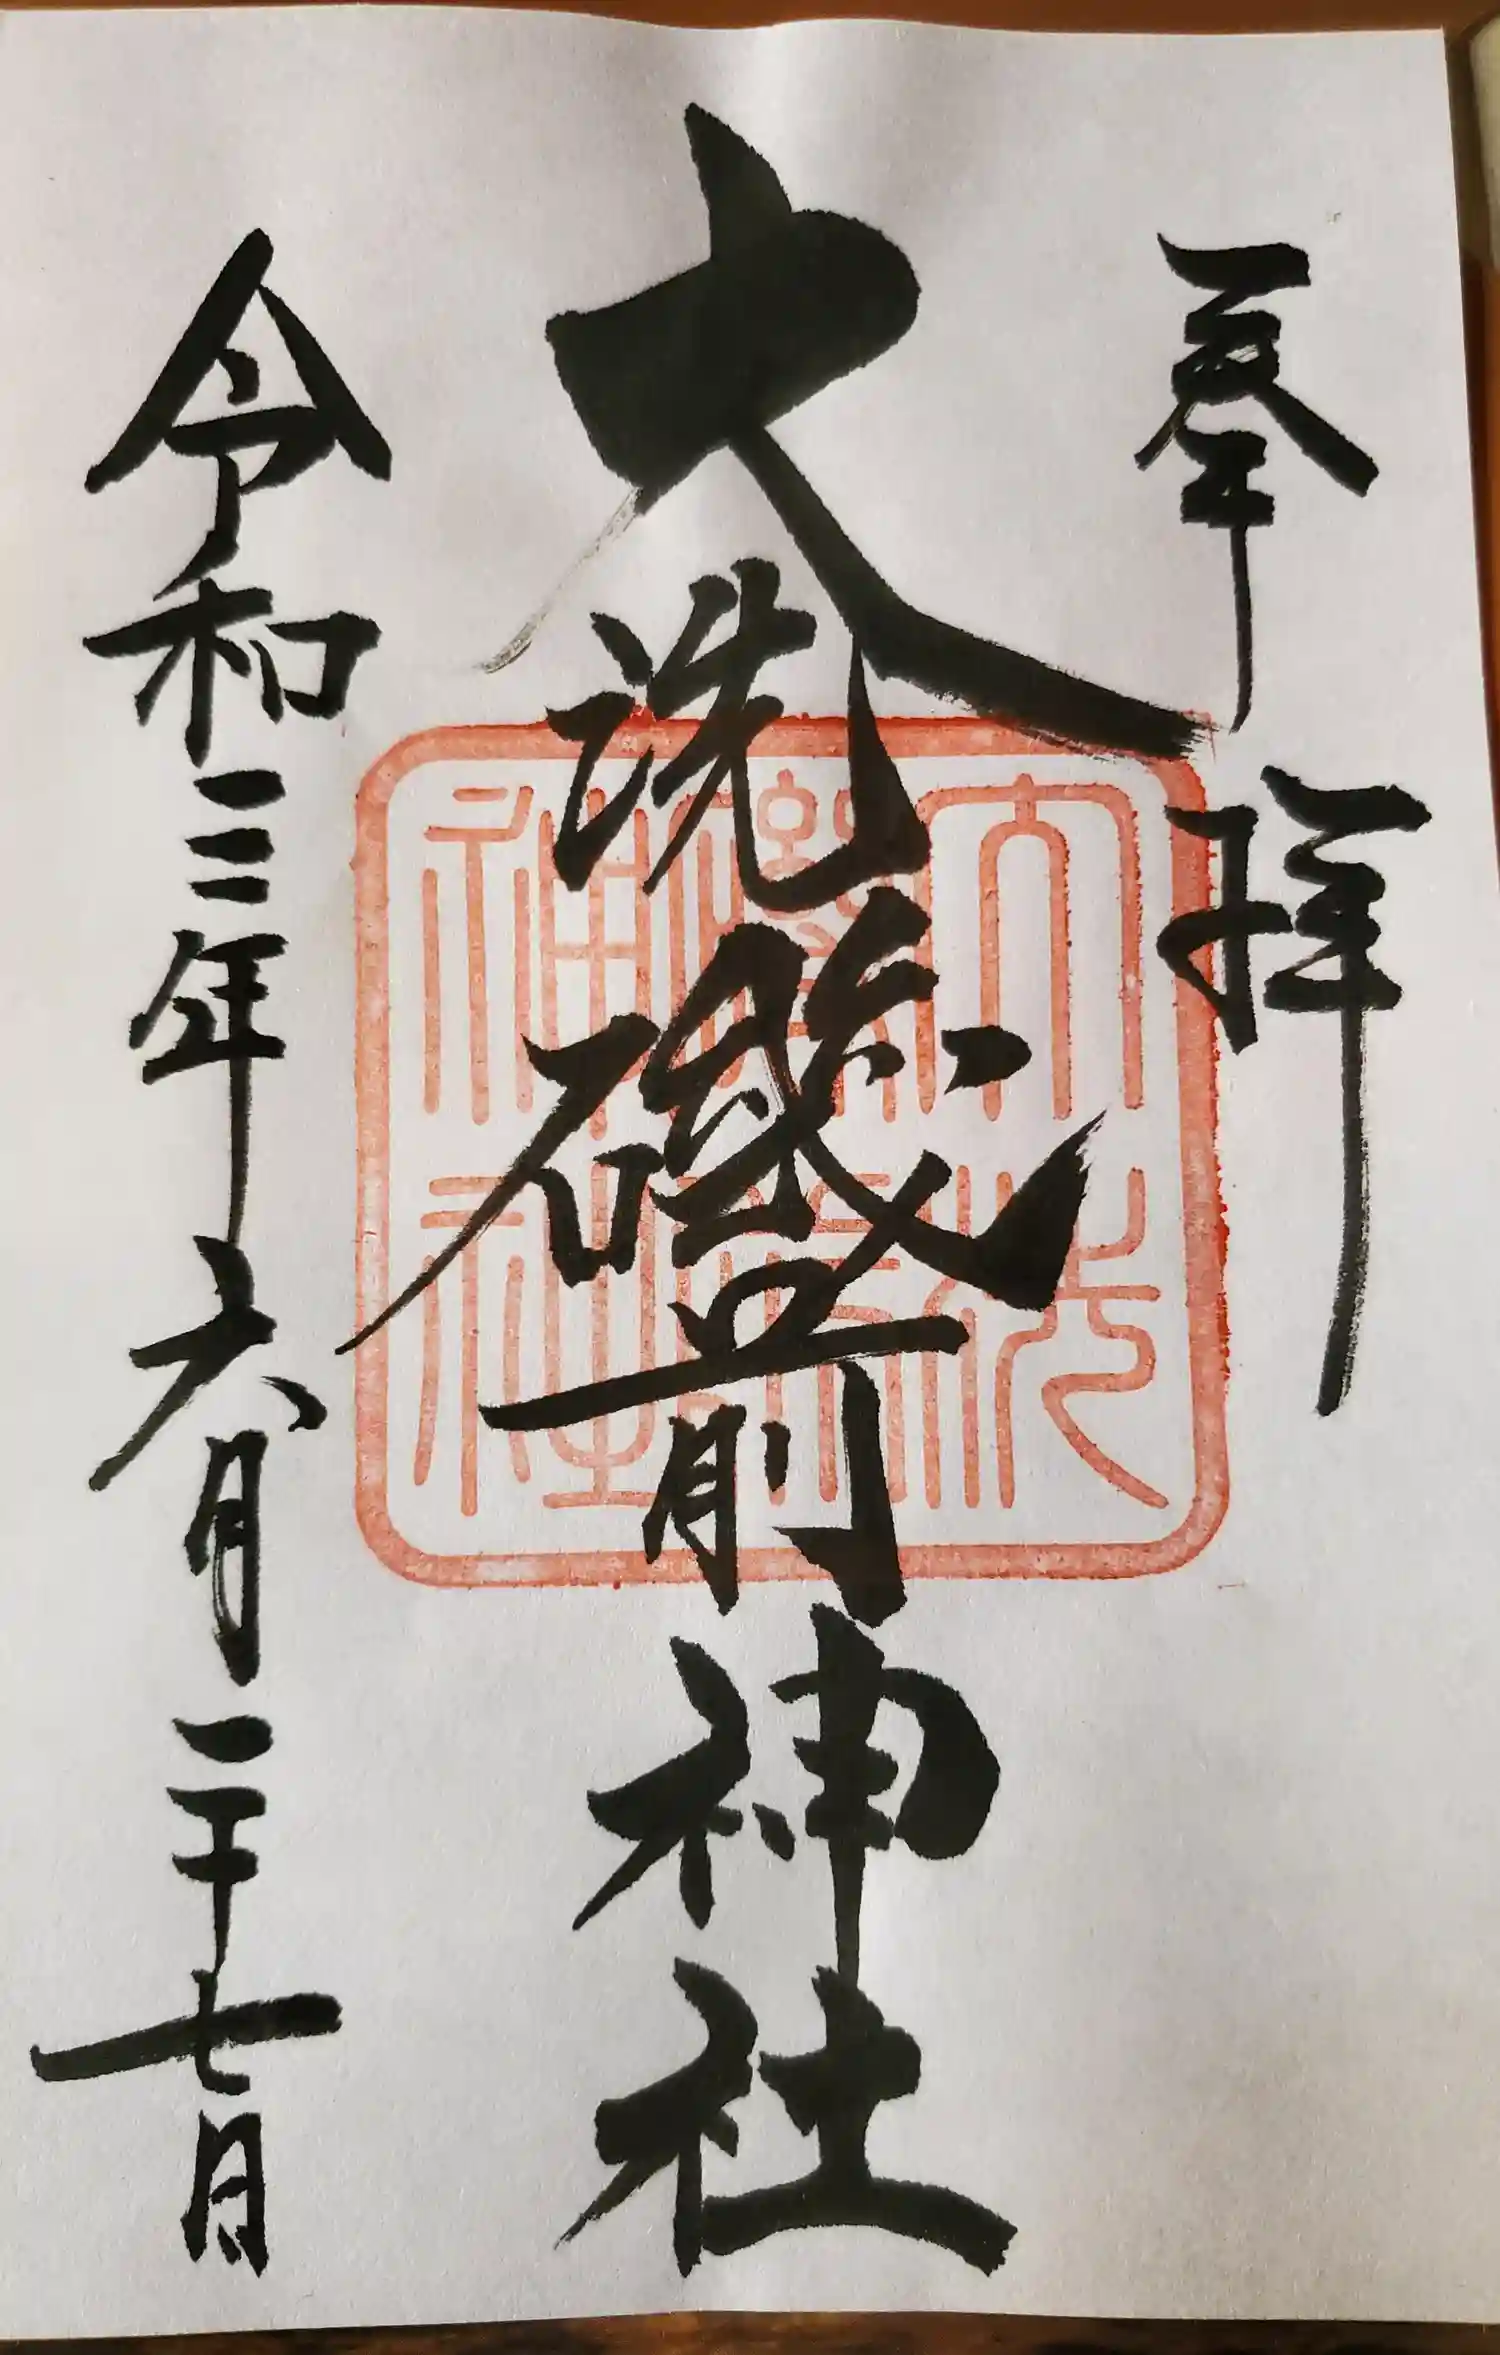 奉拝
大洗磯前神社
令和三年六月二十七日
大洗
磯前
神社